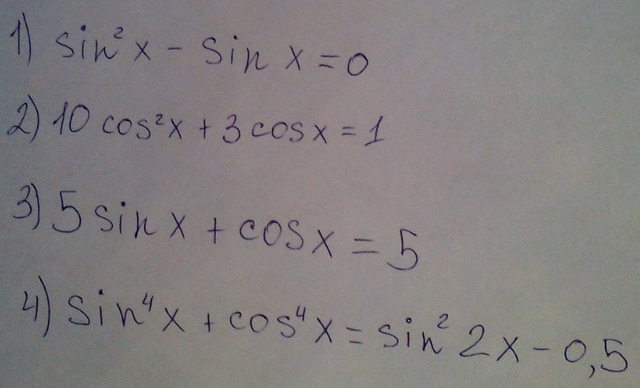 1) sin²x - sin x = 0
2) 10 cos²x + 3 cosx = 1
3) 5 sin x + cosx = 5
4) sin⁴x + cos⁴x = sin² 2x - 0,5